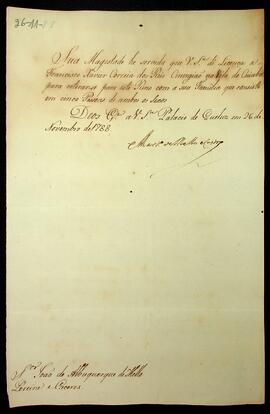 26-11-88
Sua Magestade he servida que V. S.ª dê Licença a
Francisco Xavier Correia dos Reis Cirurgião na Vila de Cuiabá
para retirarse para este Reino com a sua Familia que consiste
em cinco Pessoas de ambos os Sexos
Deos G.e a V. S.ª Palacio de Queluz em 26 de
Novembro de 1788.
Martinho de Mello e Castro
S.or João de Albuquerque de Mello
Pereira e Caceres.